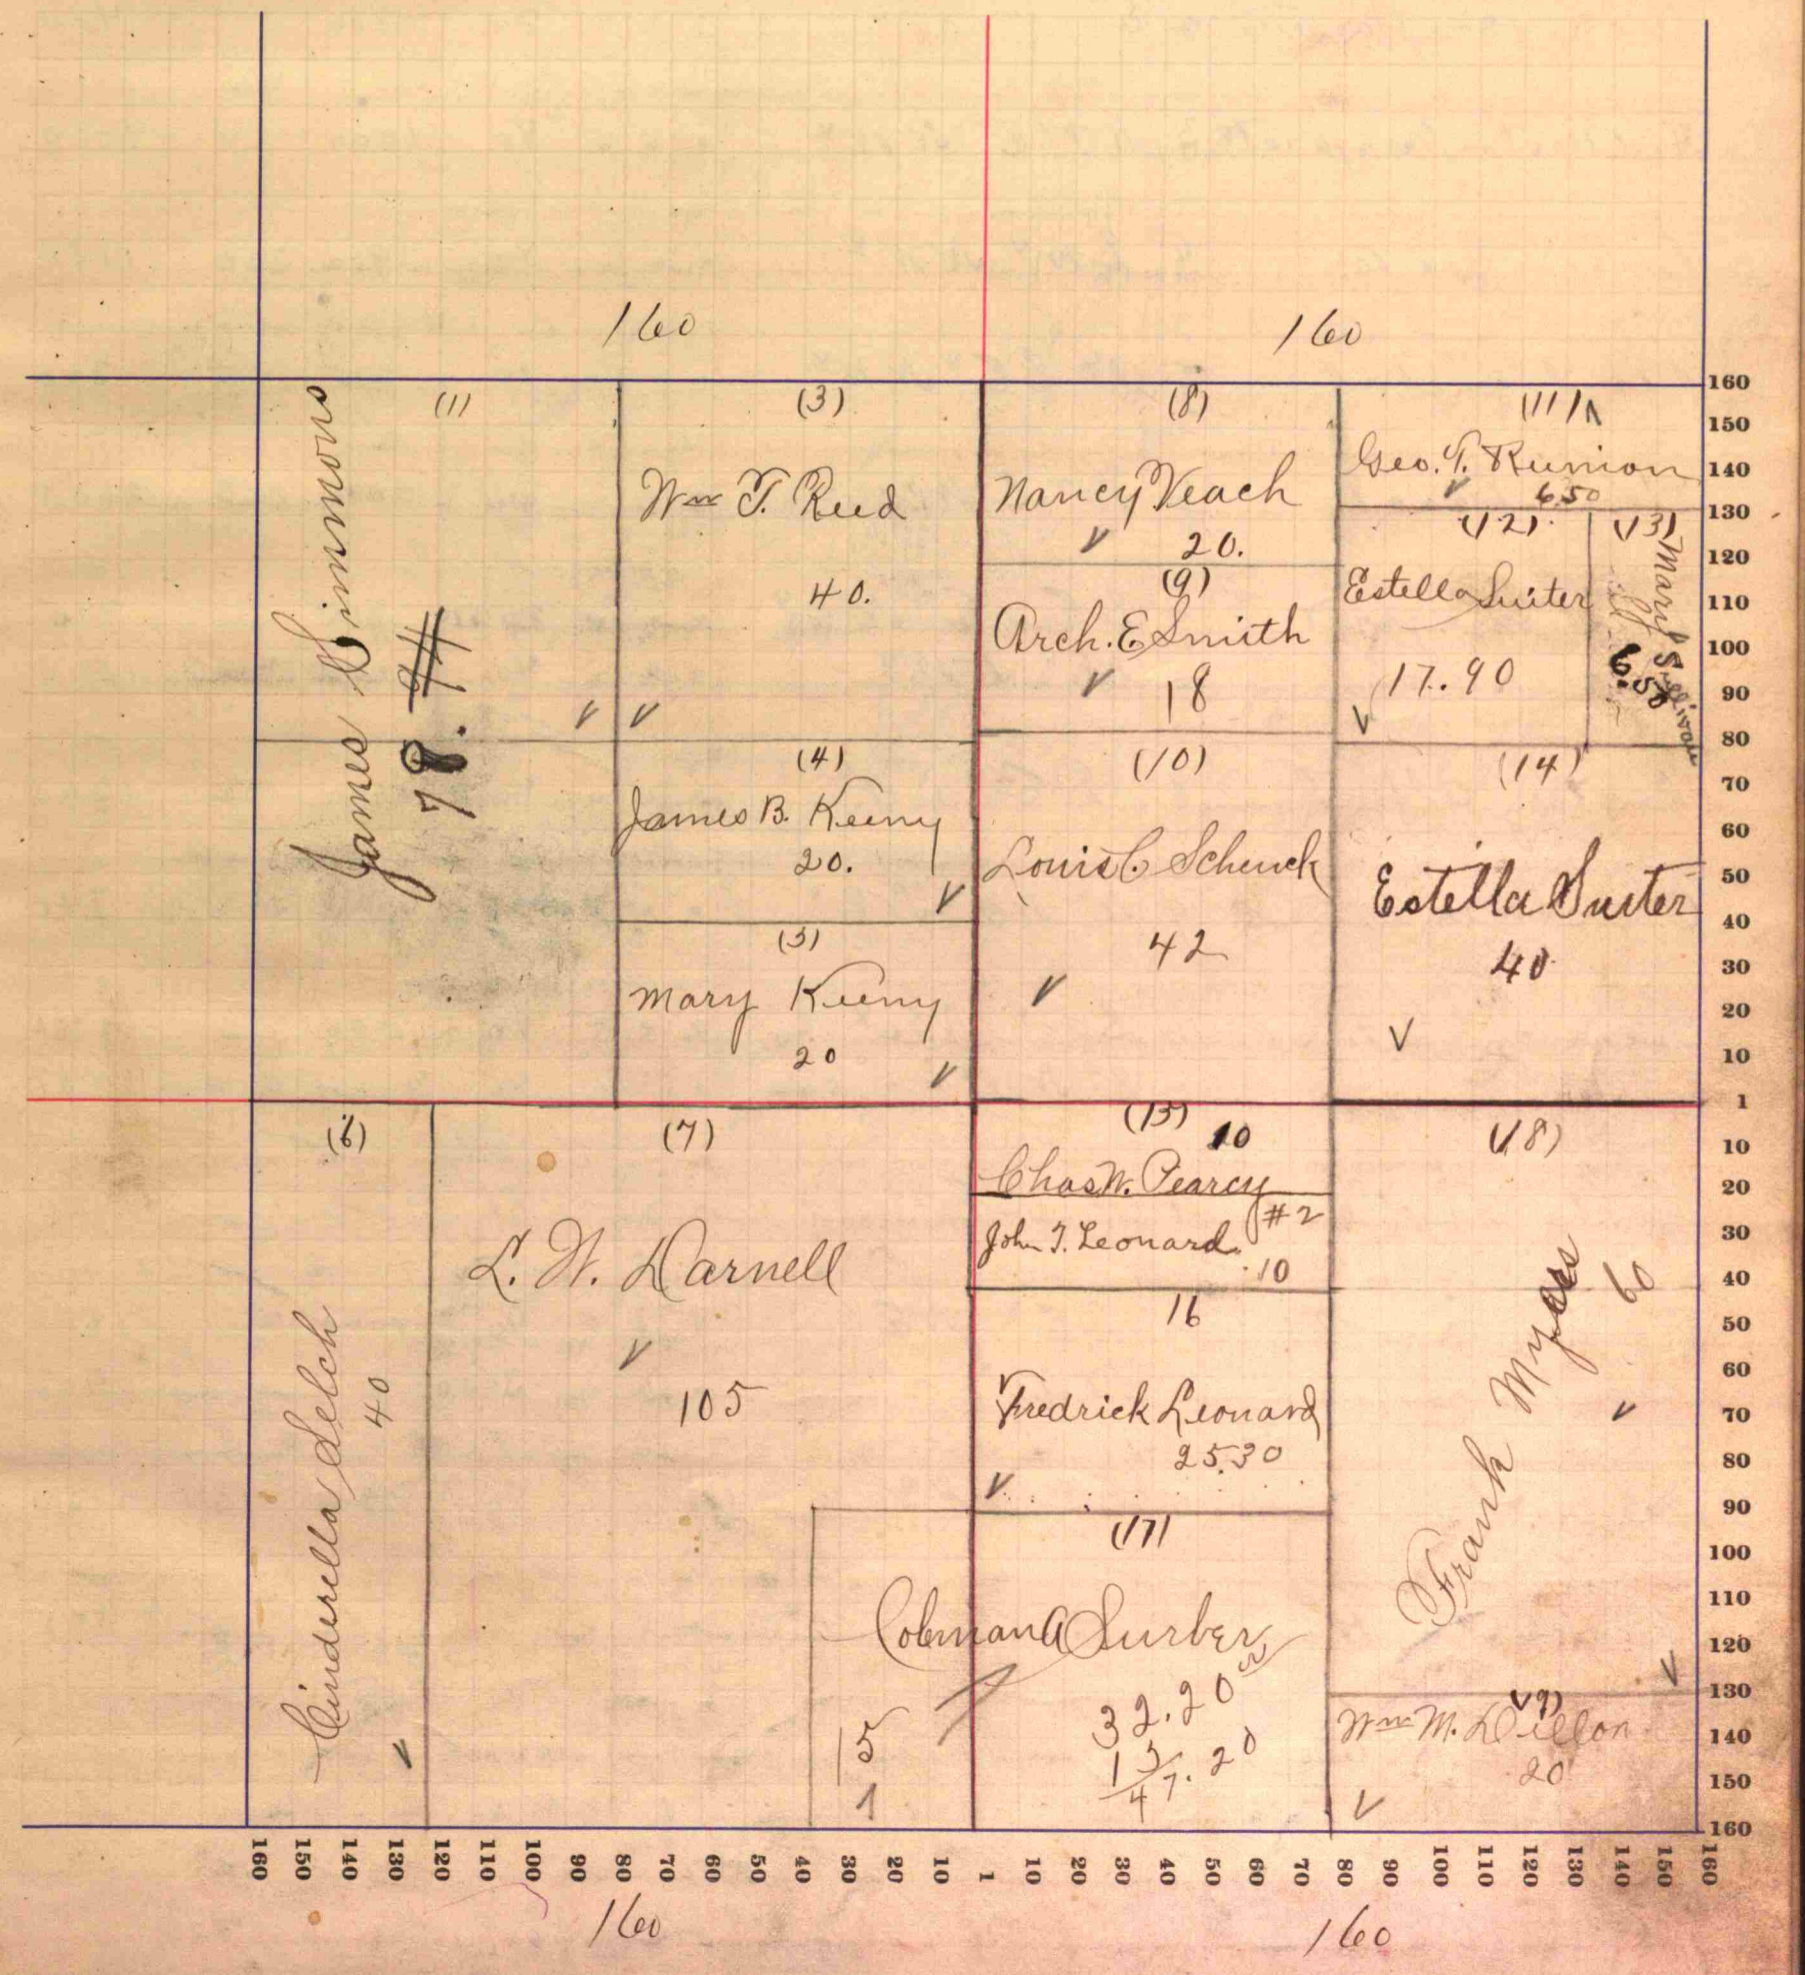 160
160
(1)
James Simmons
78.74
(3)
Wm T. Reed
40.
(4)
James B. Keeny
20.
(5)
Mary Keeny
20
(8)
Nancy Veach
20.
(9)
Arch. E Smith
18
(10)
Louis C. Schenck
42
(11)
Geo. T. Runion
6.50
(12)
Estella Suiter
17.90
(13)
Mary Sullivan
6.50
(14)
Estella Suiter
40
(2)
Cinderella Selch
40
(7)
L. W. Darnell
105
(15)
10
Chas W. Pearcy
#2
John T. Leonard
10
16
Fredrick Leonard
25.30
(17)
Colman A Surber
32.20
15
47.20
15
1
(18)
Frank Myers
60
(19)
Wm M. Dillon
20
160
150
140
130
120
110
100
90
80
70
60
50
40
30
20
10
1
10
20
30
40
50
60
70
80
90
100
110
120
130
140
150
160
160 150 140 130 120 110 100 90 80 70 60 50 40 30 20 10 1 10 20 30 40 50 60 70 80 90 100 110 120 130 140 150 160
160
160